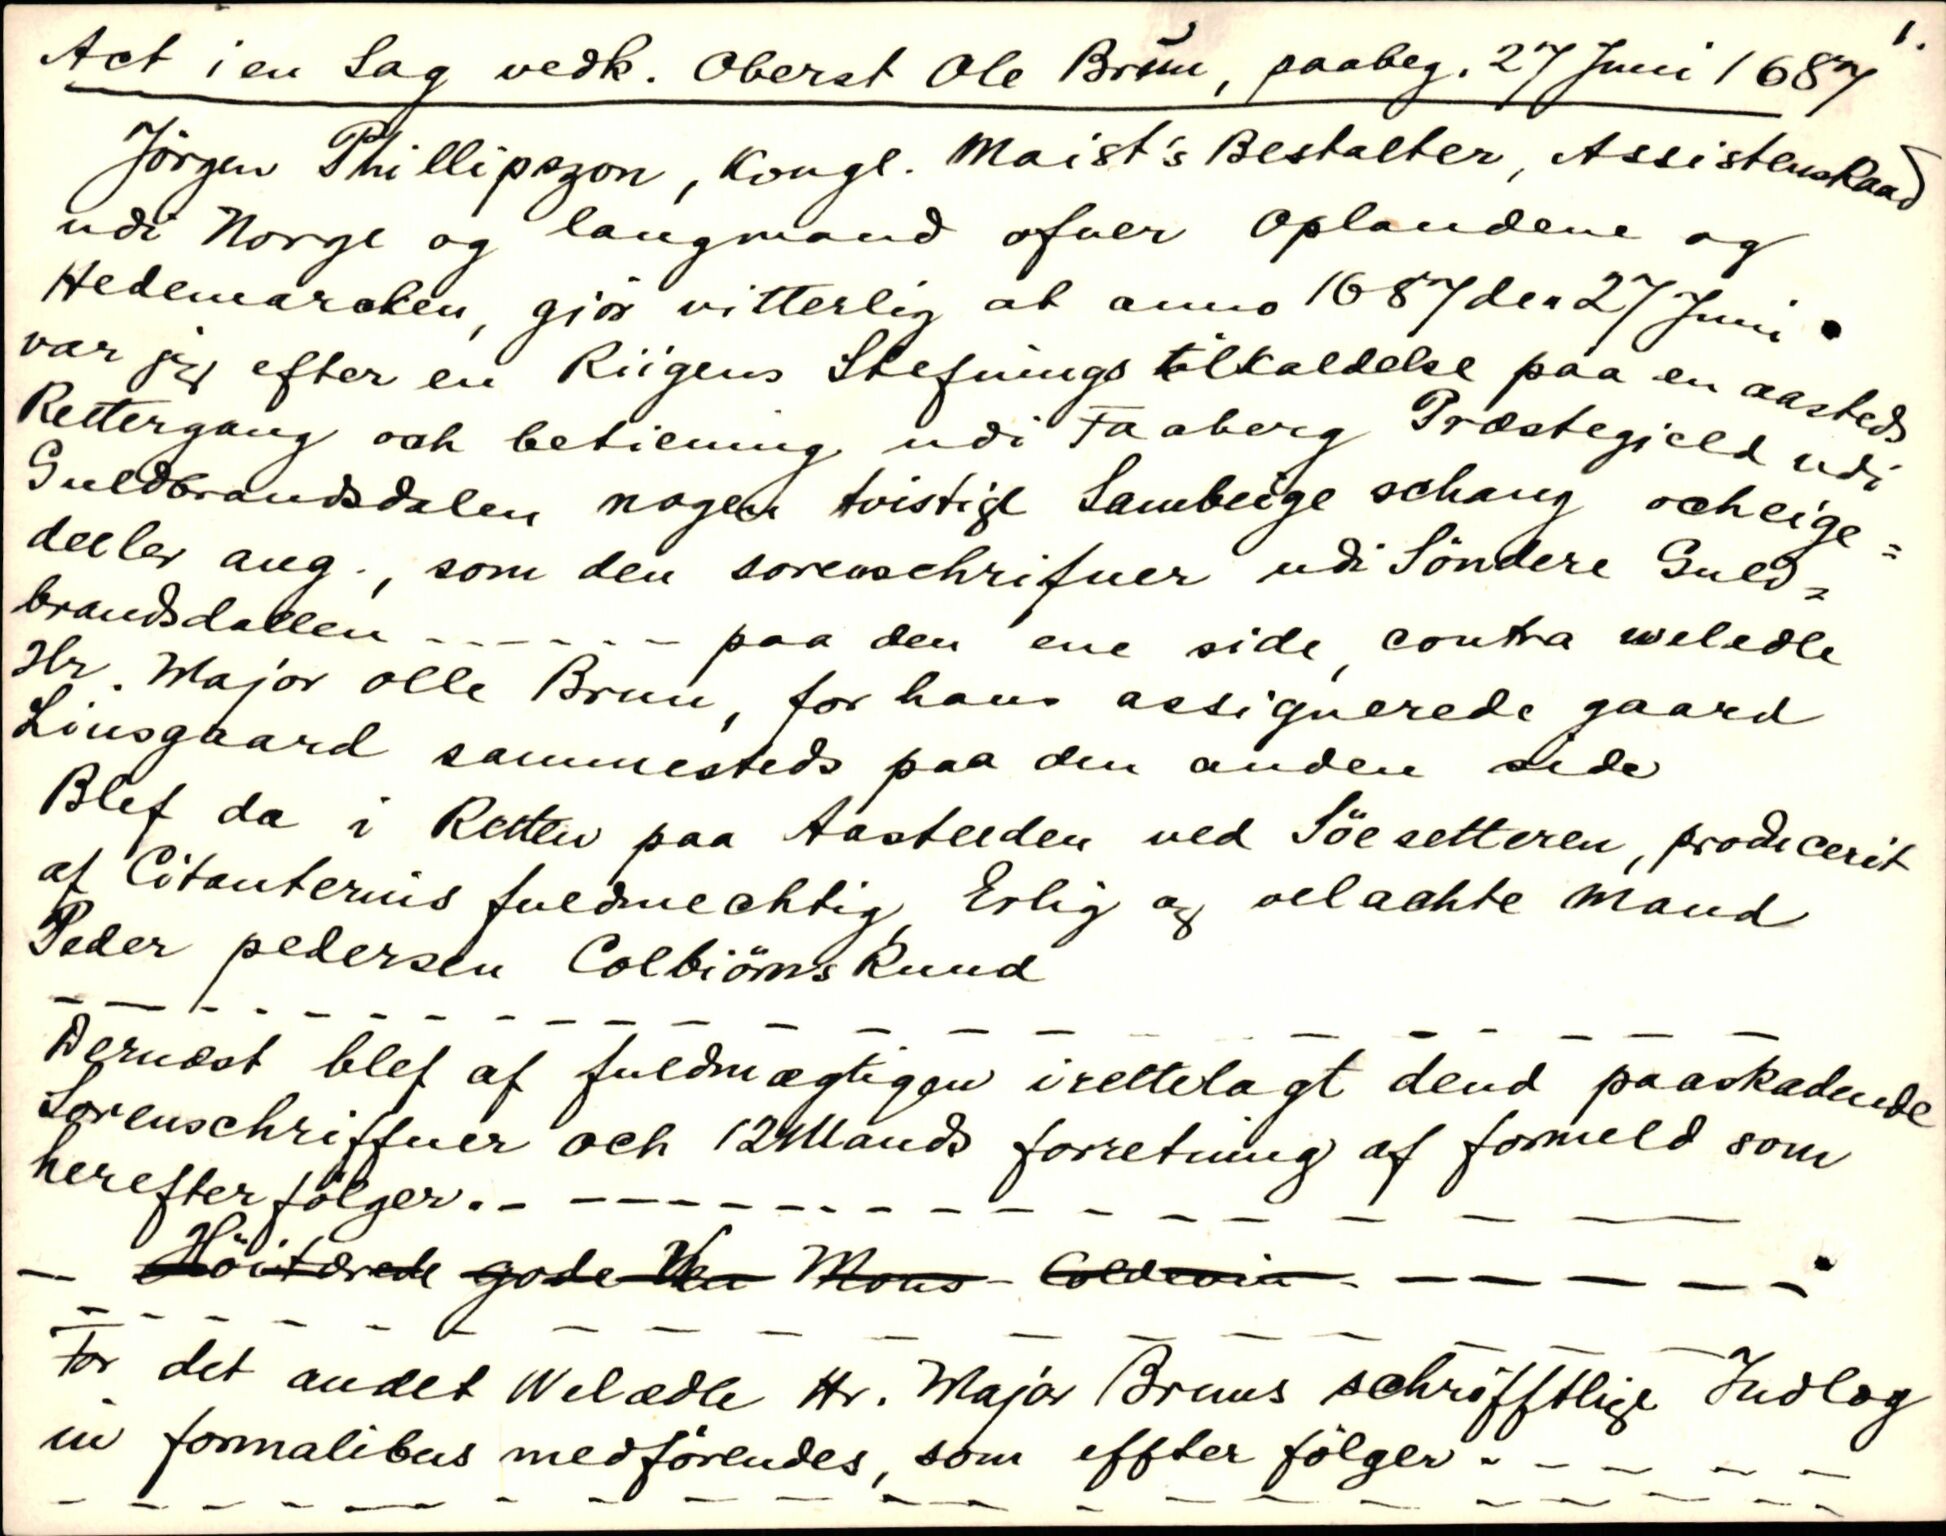 1.
Act i en Sag vedk. Oberst Ole Brun, paabeg. 27 Juni 1687
Jörgen Phillipszon, Kongl. Maist's Bestalter, Assistensraad
udi Norge og laugmand ofuer Oplandene og
Hedemarcken, giör vitterlig at anno 1687 den 27 Juni
var jeg efter en Riigens Stefnings tilkaldelse paa en aasteds
Rettergang och betiening udi Faaberg Præstegield udi
Guldbrandsdalen nogen tvistige Sambeige schaug och eige=
deeler ang., som den sorenschrifuer udi Söndere Guld=
brandsdallen - - - - - - paa den ene side, contra weledle
Hr. Major Olle Brun, for hans assignerede gaard
Linsgaard sammesteds paa den anden side
Blef da i Retten paa Aasteeden ved Söesetteren, producerit
af Citanternis fuldmechtig, Erlig og velachte Mand
Peder pedersen Colbiörnsrund
- - - - - - - - - - - - - - - - - - -
Dernæst blef af fuldmægtigen irettelagt dend paaskadende
Sorenschriffuer och 12 Mands forretning af formeld som
herefter fölger. - - - - - - - - - - - - - - -
- Höitærede gode Ven Mons Coldevin - - - - - -
- - - - - - - - - - - - - - - - -
For det andet Welædle Hr. Major Bruns schrifftlige Indlæg
in formalibus medförendes, som effter fölger - - - - -
- - - - - - - - - - - - - - - - - - -